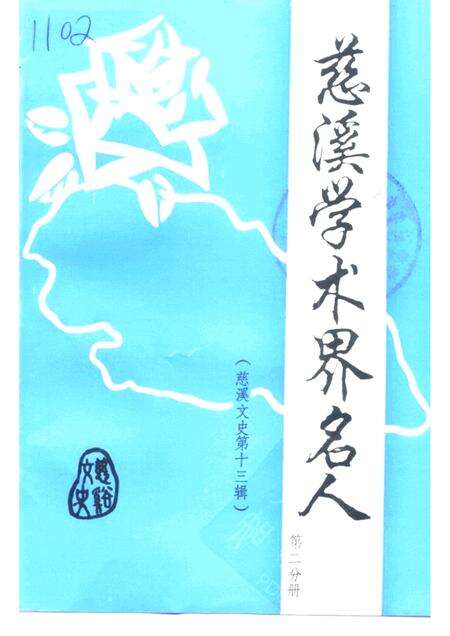 1102
慈溪学术界名人
第二分册
(慈溪文史第十三辑)
慈谿
文史